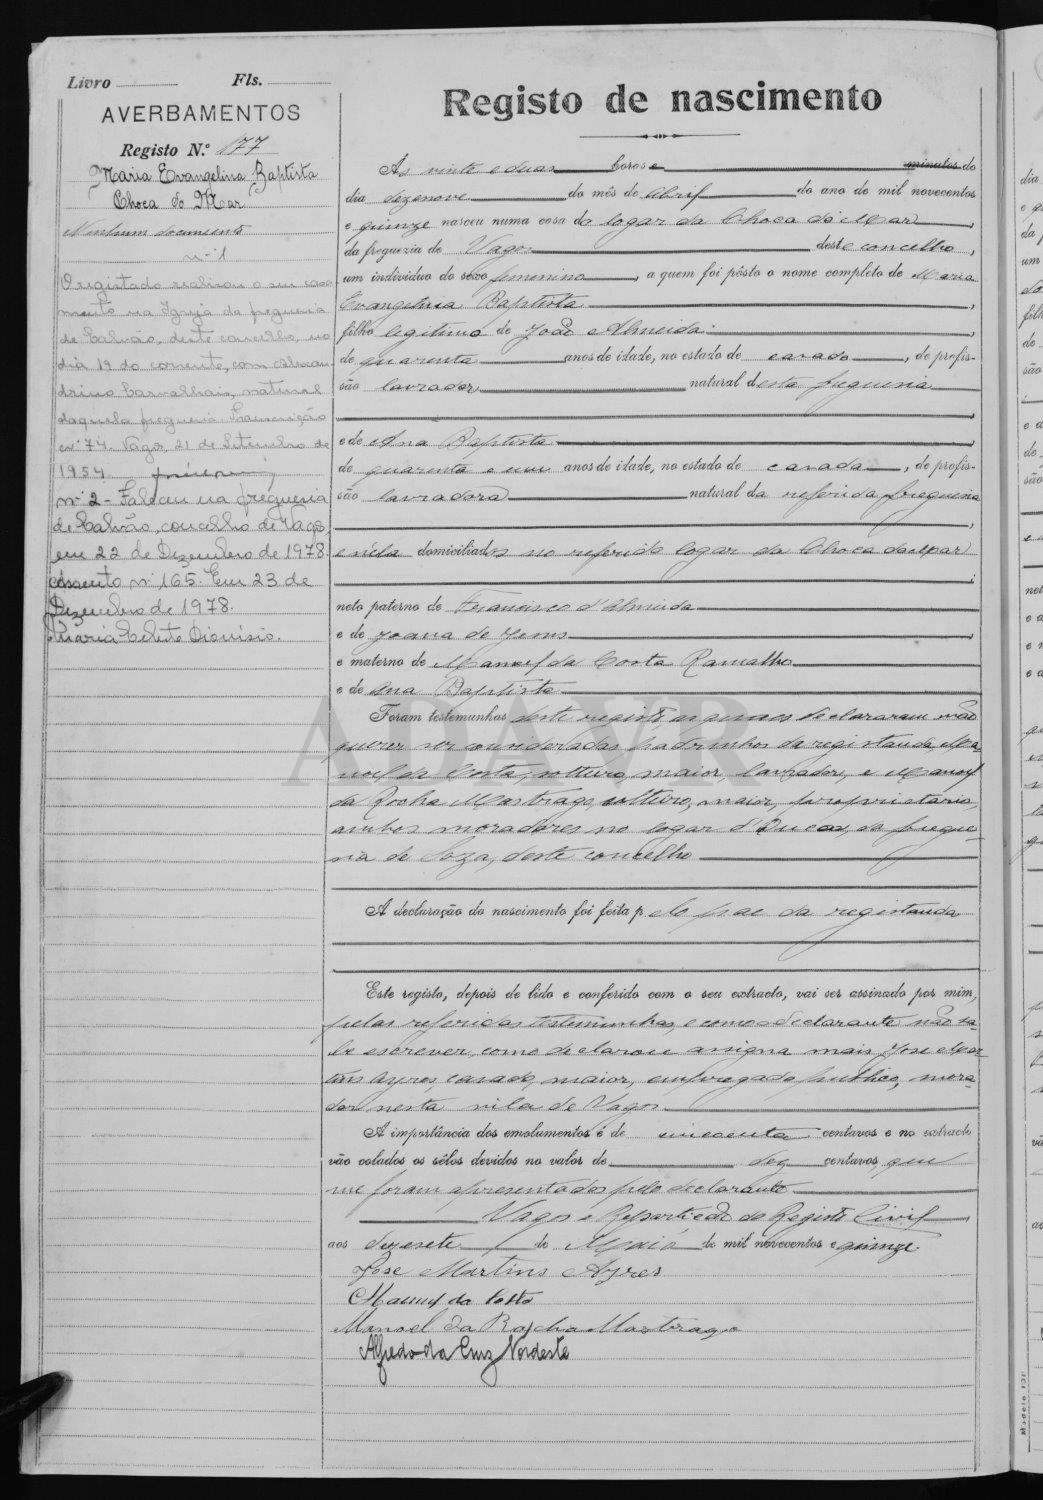 Livro Fls.
AVERBAMENTOS
Registo N.º 177
Maria Evangelina Baptista
Choca do Mar
Nenhum documento
nº 1
O registado realizou o seu casa
mento na Igreja da freguesia
de Calvão, deste concelho, no
dia 19 do corrente, com
drino Carvalhais, natural
daquela freguesia. Transcrição
nº 74. Vagos, 21 de Setembro de
1954.
nº 2 - Faleceu na freguesia
de Calvão, concelho de Vagos,
em 22 de Dezembro de 1978.
Assento nº 165. Em 23 de
Dezembro de 1978.
Maria Celeste Dionísio.
Registo de nascimento
Ás vinte e duas horas e minutos do
dia dezenove do mês de Abril do ano de mil novecentos
e quinze nasceu numa casa do logar da Choca do Mar,
da freguezia de Vagos deste concelho,
um indivíduo do sexo femenino, a quem foi pôsto o nome completo de Maria
Evangelina Baptista,
filho legitimo de João d'Almeida,
de quarenta anos de idade, no estado de casado, de profis-
são lavrador, natural desta freguesia
e de Ana Baptista,
de quarenta e um anos de idade, no estado de casada, de profis-
são lavradora natural da referida freguesia
e nela domiciliados no referido logar da Choca do Mar
neto paterno de Francisco d'Almeida
e de Joana de Jesus,
e materno de Manoel da Costa Ramalho
e de Ana Baptista
Foram testemunhas deste registo as quaes declararam não
querer ser consideradas padrinhos da registanda, Ma-
noel da Costa, solteiro, maior, lavrador, e Manoel
da Rocha Martrago, solteiro, maior, proprietario,
ambos moradores no logar d'Ouca, da fregue-
sia de Soza, deste concelho
A declaração do nascimento foi feita pelo pae da registanda
Este registo, depois de lido e conferido com o seu extracto, vai ser assinado por mim,
pelas referidas testemunhas, e como o declarante não sa-
be escrever, como declarou assigna mais José Mar-
tins Ayres, casado, maior, empregado publico, mora-
dor nesta vila de Vagos
A importância dos emolumentos é de cincoenta centavos e no extracto
vão colados os sêlos devidos no valor de dez centavos, que
me foram apresentados pelo declarante
Vagos e Repartição do Registo Civil,
aos dezesete de Maio de mil novecentos e quinze.
José Martins Ayres
Manuel da Costa
Manoel da Rocha Martrago
Alfredo da Cruz Nordeste
ADAVR